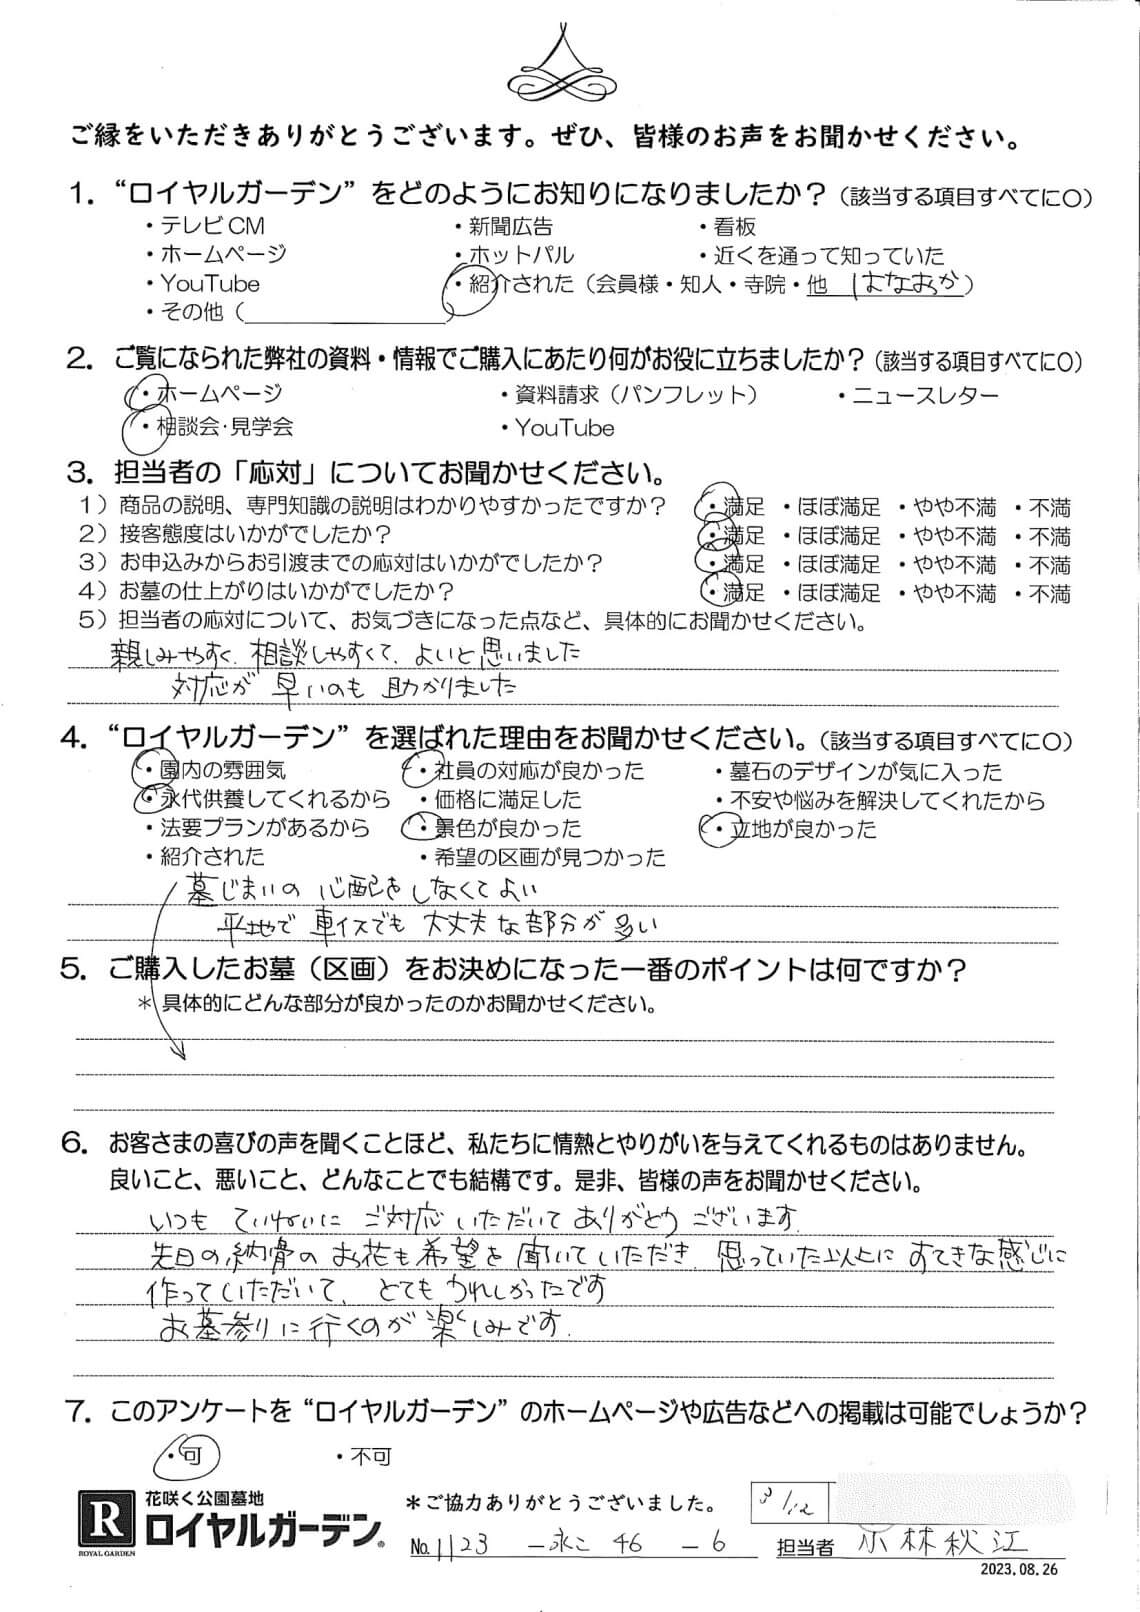 ご縁をいただきありがとうございます。ぜひ、皆様のお声をお聞かせください。
1. “ロイヤルガーデン”をどのようにお知りになりましたか？（該当する項目すべてに〇）
・テレビCM ・新聞広告 ・看板
・ホームページ ・ホットパル ・近くを通って知っていた
・YouTube ・紹介された（会員様・知人・寺院・他 はなおか）
・その他（ ）
2. ご覧になられた弊社の資料・情報でご購入にあたり何がお役に立ちましたか？（該当する項目すべてに〇）
・ホームページ ・資料請求（パンフレット） ・ニュースレター
・相談会・見学会 ・YouTube
3. 担当者の「応対」についてお聞かせください。
1）商品の説明、専門知識の説明はわかりやすかったですか？ ・満足 ・ほぼ満足 ・やや不満 ・不満
2）接客態度はいかがでしたか？ ・満足 ・ほぼ満足 ・やや不満 ・不満
3）お申込みからお引渡までの応対はいかがでしたか？ ・満足 ・ほぼ満足 ・やや不満 ・不満
4）お墓の仕上がりはいかがでしたか？ ・満足 ・ほぼ満足 ・やや不満 ・不満
5）担当者の応対について、お気づきになった点など、具体的にお聞かせください。
親しみやすく、相談しやすくて、よいと思いました
対応が早いのも助かりました
4. “ロイヤルガーデン”を選ばれた理由をお聞かせください。（該当する項目すべてに〇）
・園内の雰囲気 ・社員の対応が良かった ・墓石のデザインが気に入った
・永代供養してくれるから ・価格に満足した ・不安や悩みを解決してくれたから
・法要プランがあるから ・景色が良かった ・立地が良かった
・紹介された ・希望の区画が見つかった
墓じまいの心配をしなくてよい
平地で車イスでも大丈夫な部分が多い
5. ご購入したお墓（区画）をお決めになった一番のポイントは何ですか？
＊具体的にどんな部分が良かったのかお聞かせください。
6. お客さまの喜びの声を聞くことほど、私たちに情熱とやりがいを与えてくれるものはありません。
良いこと、悪いこと、どんなことでも結構です。是非、皆様の声をお聞かせください。
いつもていねいにご対応いただいてありがとうございます.
先日の納骨のお花も希望を聞いていただき、思っていた以上にすてきな感じに
作っていただいて、とてもうれしかったです
お墓参りに行くのが楽しみです.
7. このアンケートを“ロイヤルガーデン”のホームページや広告などへの掲載は可能でしょうか？
・可 ・不可
R
ROYAL GARDEN
花咲く公園墓地
ロイヤルガーデン®
＊ご協力ありがとうございました。
3/12
No. 1123 -永こ 46 -6
担当者 小林秋江
2023.08.26